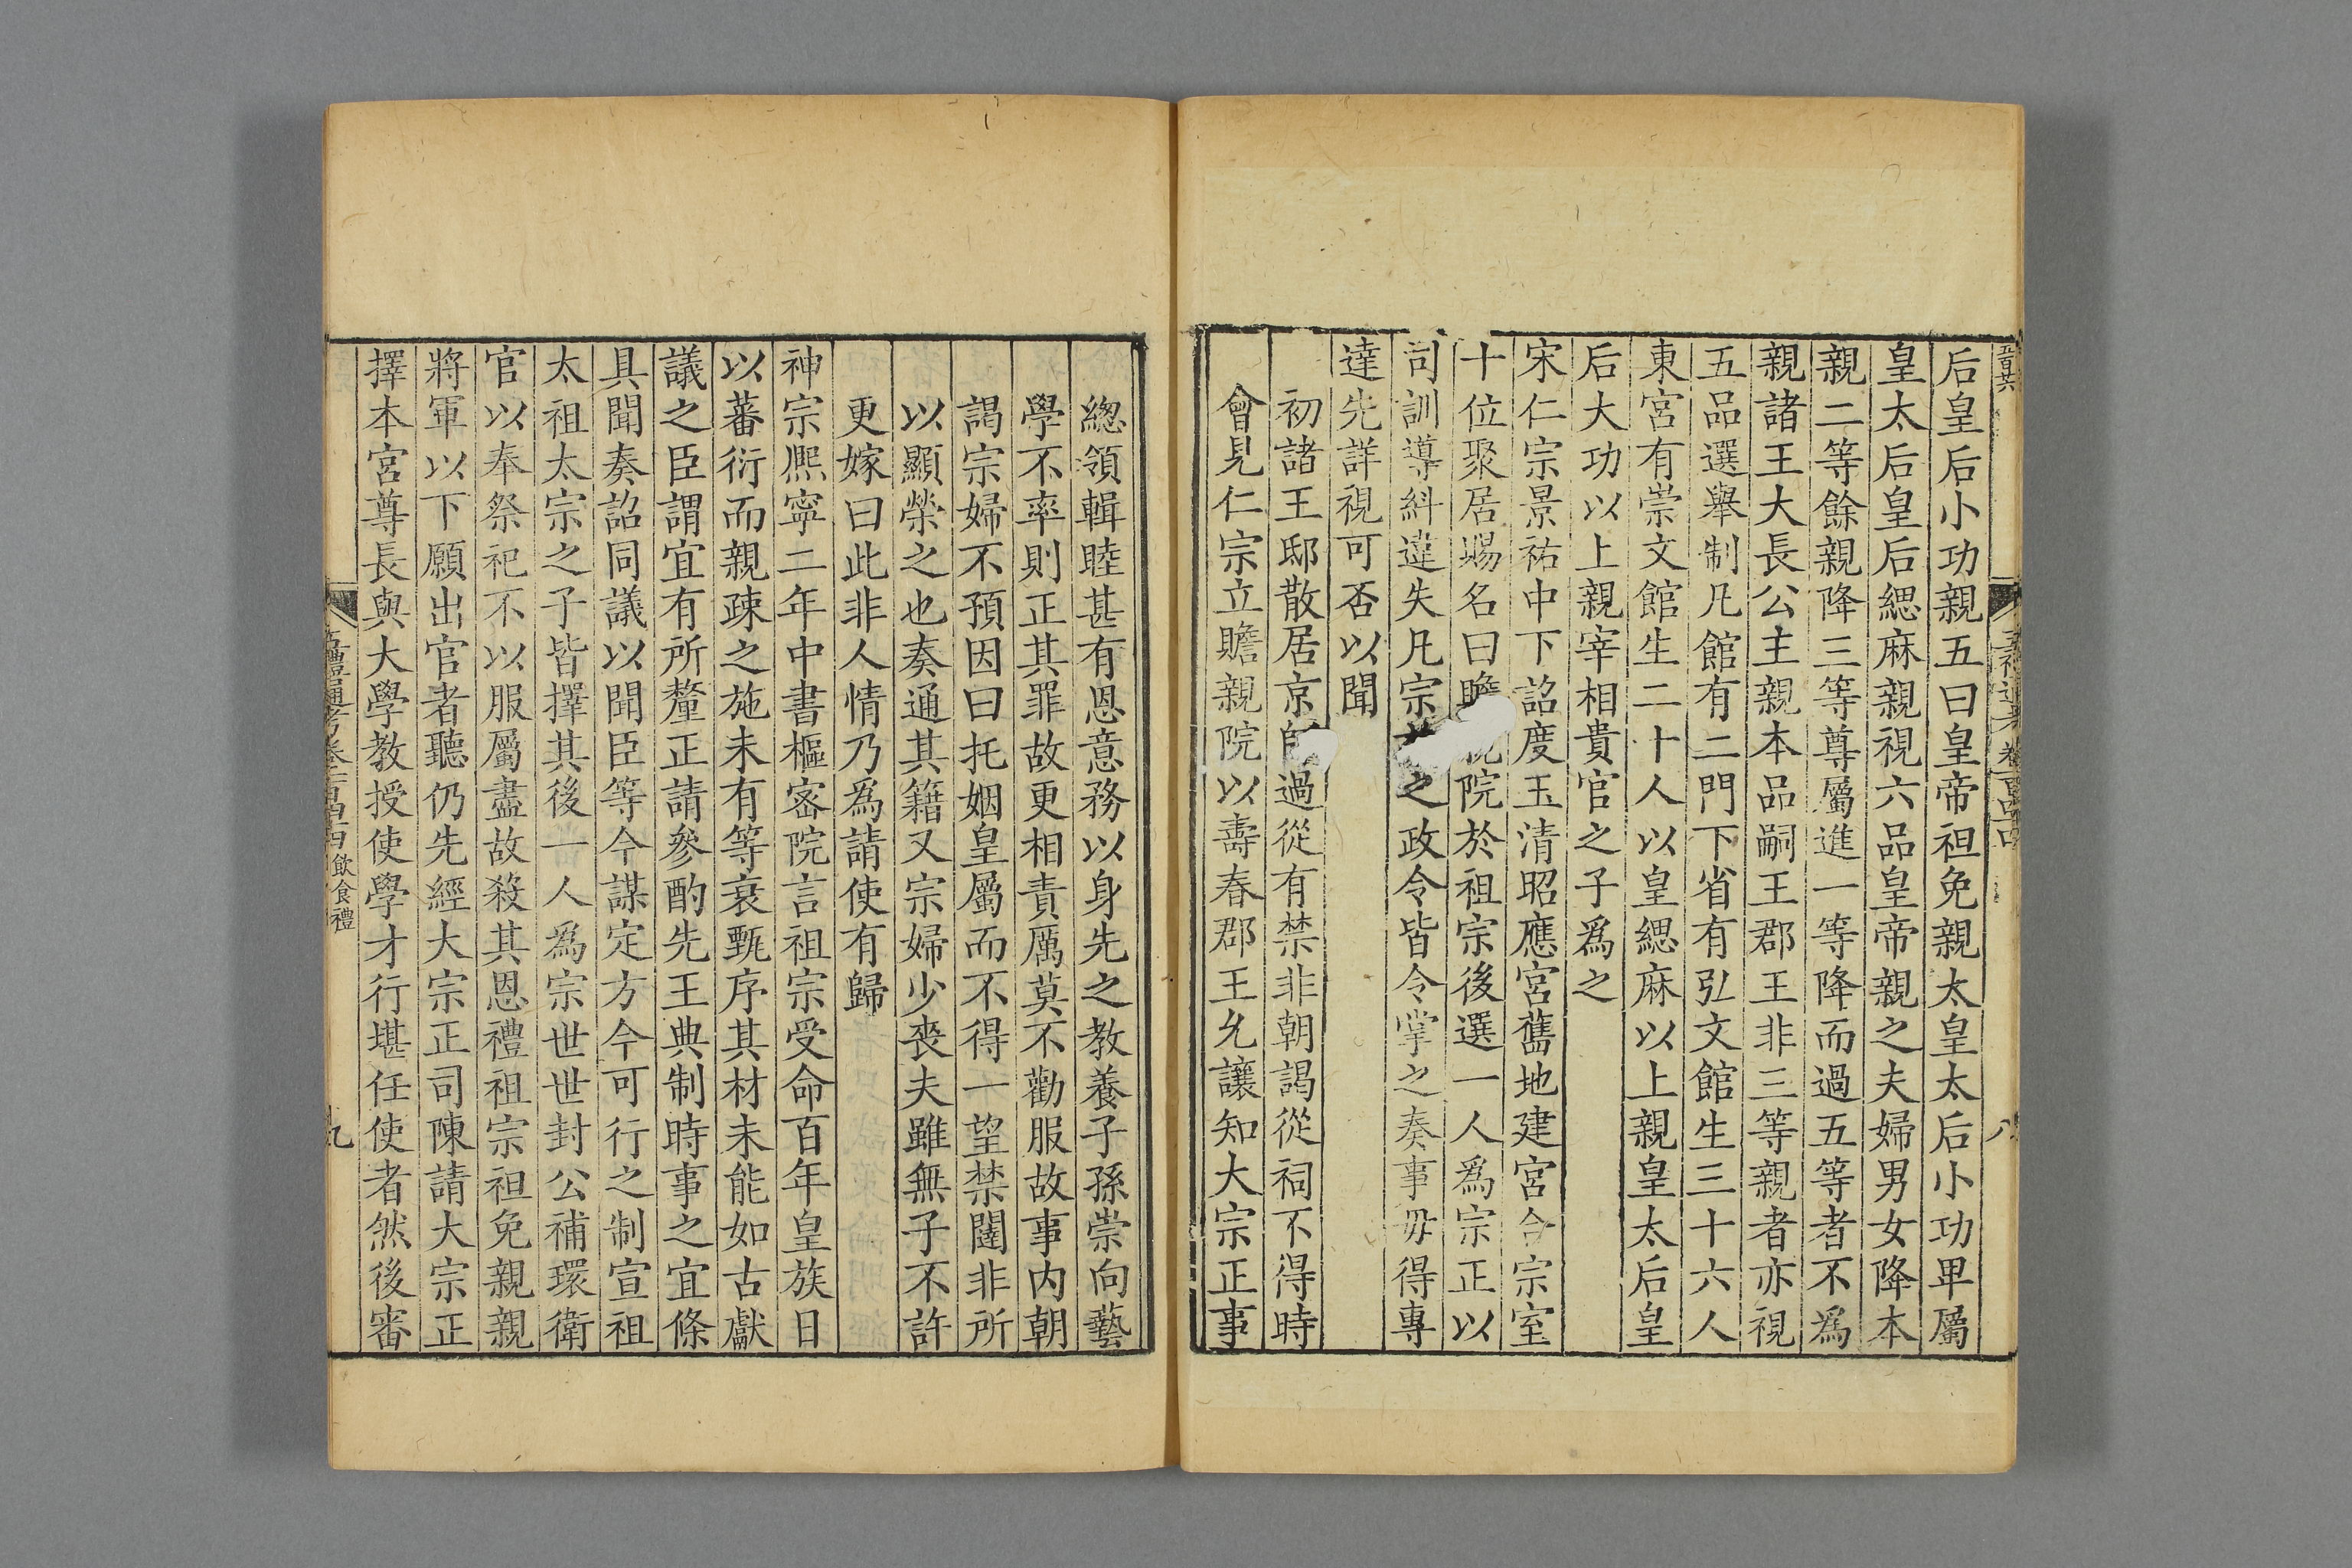 后皇后小功親五曰皇帝袒免親太皇太后小功卑屬
皇太后皇后緦麻親視六品皇帝親之夫婦男女降本
親二等餘親降三等尊屬進一等降而過五等者不爲
親諸王大長公主親本品嗣王郡王非三等親者亦視
五品選舉制凡館有二門下省有弘文館生三十六人
東宮有崇文館生二十人以皇緦麻以上親皇太后皇
后大功以上親宰相貴官之子爲之
宋仁宗景祐中下詔度玉清昭應宮舊地建宮合宗室
十位聚居賜名曰院於祖宗後選一人爲宗正以
司訓導糾違失凡宗之政令皆令掌之奏事毋得專
達先詳視可否以聞
初諸王邸散居京過從有禁非朝謁從祠不得時
會見仁宗立睦親院以壽春郡王允讓知大宗正事
總領輯睦甚有恩意務以身先之教養子孫崇向藝
學不率則正其罪故更相責厲莫不勸服故事内朝
謁宗婦不預因曰托姻皇屬而不得一望禁闥非所
以顯榮之也奏通其籍又宗婦少喪夫雖無子不許
更嫁曰此非人情乃爲請使有歸
神宗熙寧二年中書樞密院言祖宗受命百年皇族日
以蕃衍而親疎之施未有等衰甄序其材未能如古獻
議之臣謂宜有所釐正請參酌先王典制時事之宜條
具聞奏詔同議以聞臣等今謀定方今可行之制宣祖
太祖太宗之子皆擇其後一人爲宗世世封公補環衛
官以奉祭祀不以服屬盡故殺其恩禮祖宗袒免親親
將軍以下願出官者聽仍先經大宗正司陳請大宗正
擇本宮尊長與大學教授使學才行堪任使者然後審
五禮通考卷一百四十四 飲食禮
九